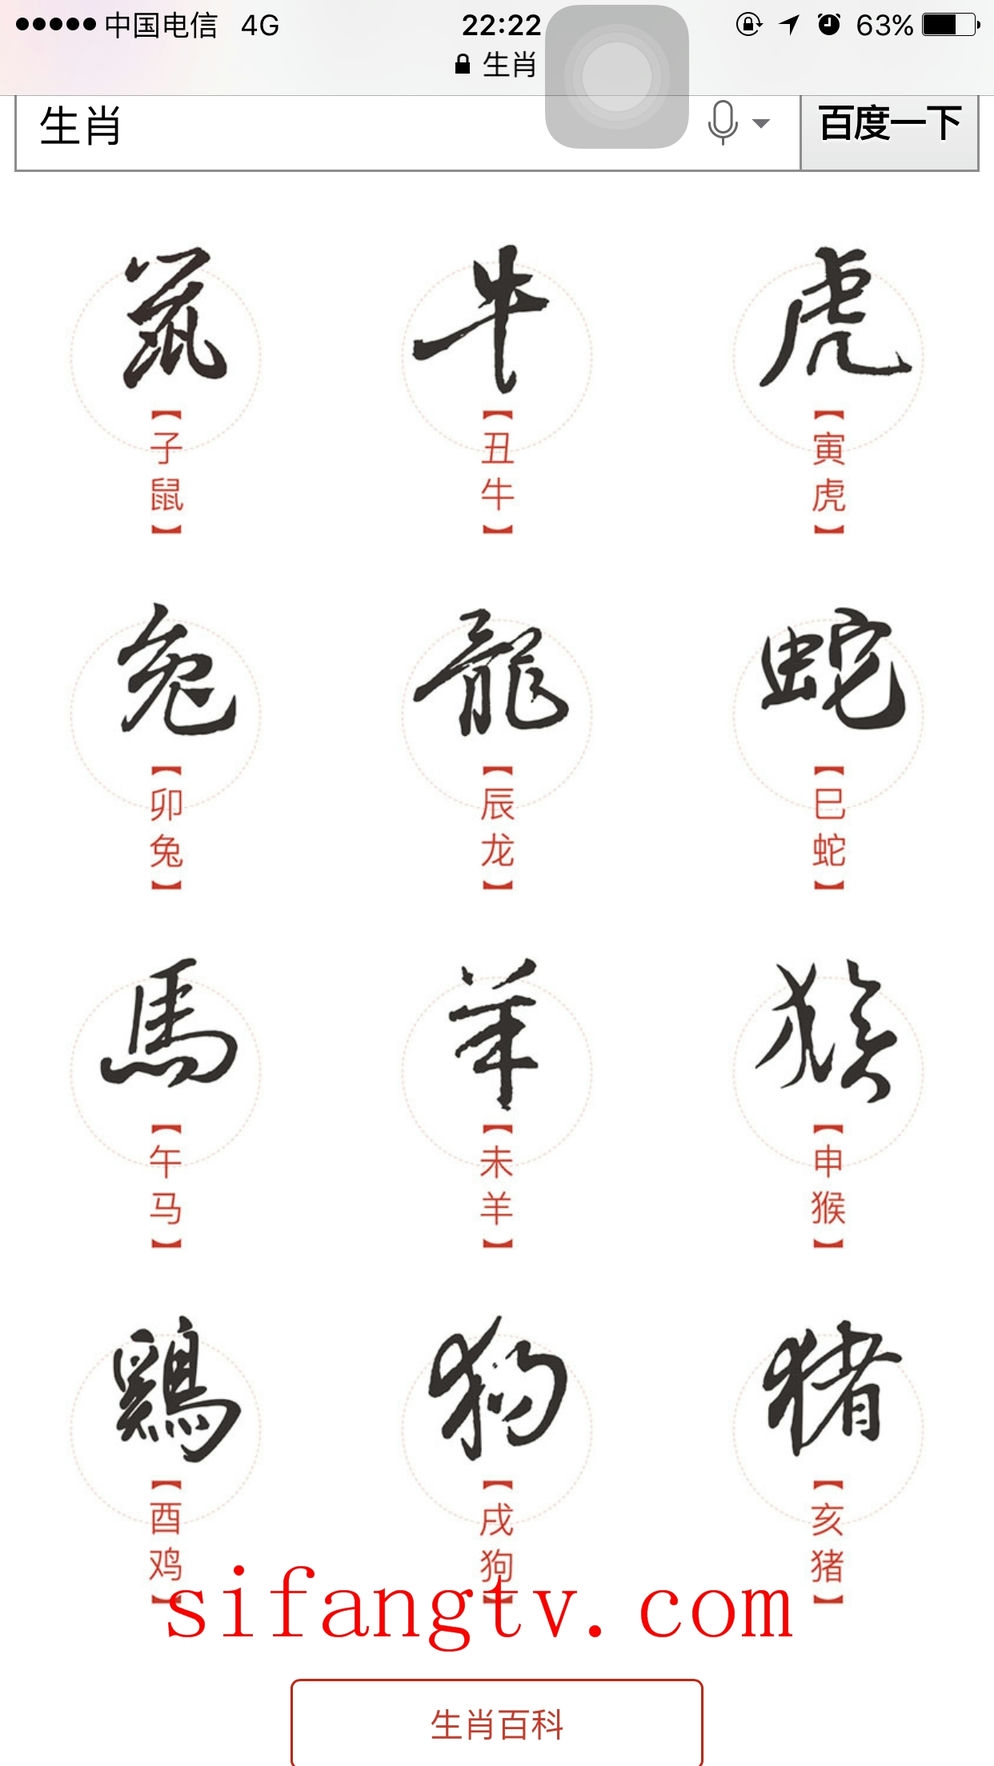 中国电信 4G 22:22 63%
生肖
生肖 百度一下
鼠 牛 虎
【子鼠】 【丑牛】 【寅虎】
兔 龍 蛇
【卯兔】 【辰龙】 【巳蛇】
馬 羊 猴
【午马】 【未羊】 【申猴】
鷄 狗 猪
【酉鸡】 【戌狗】 【亥猪】
sifangtv.com
生肖百科